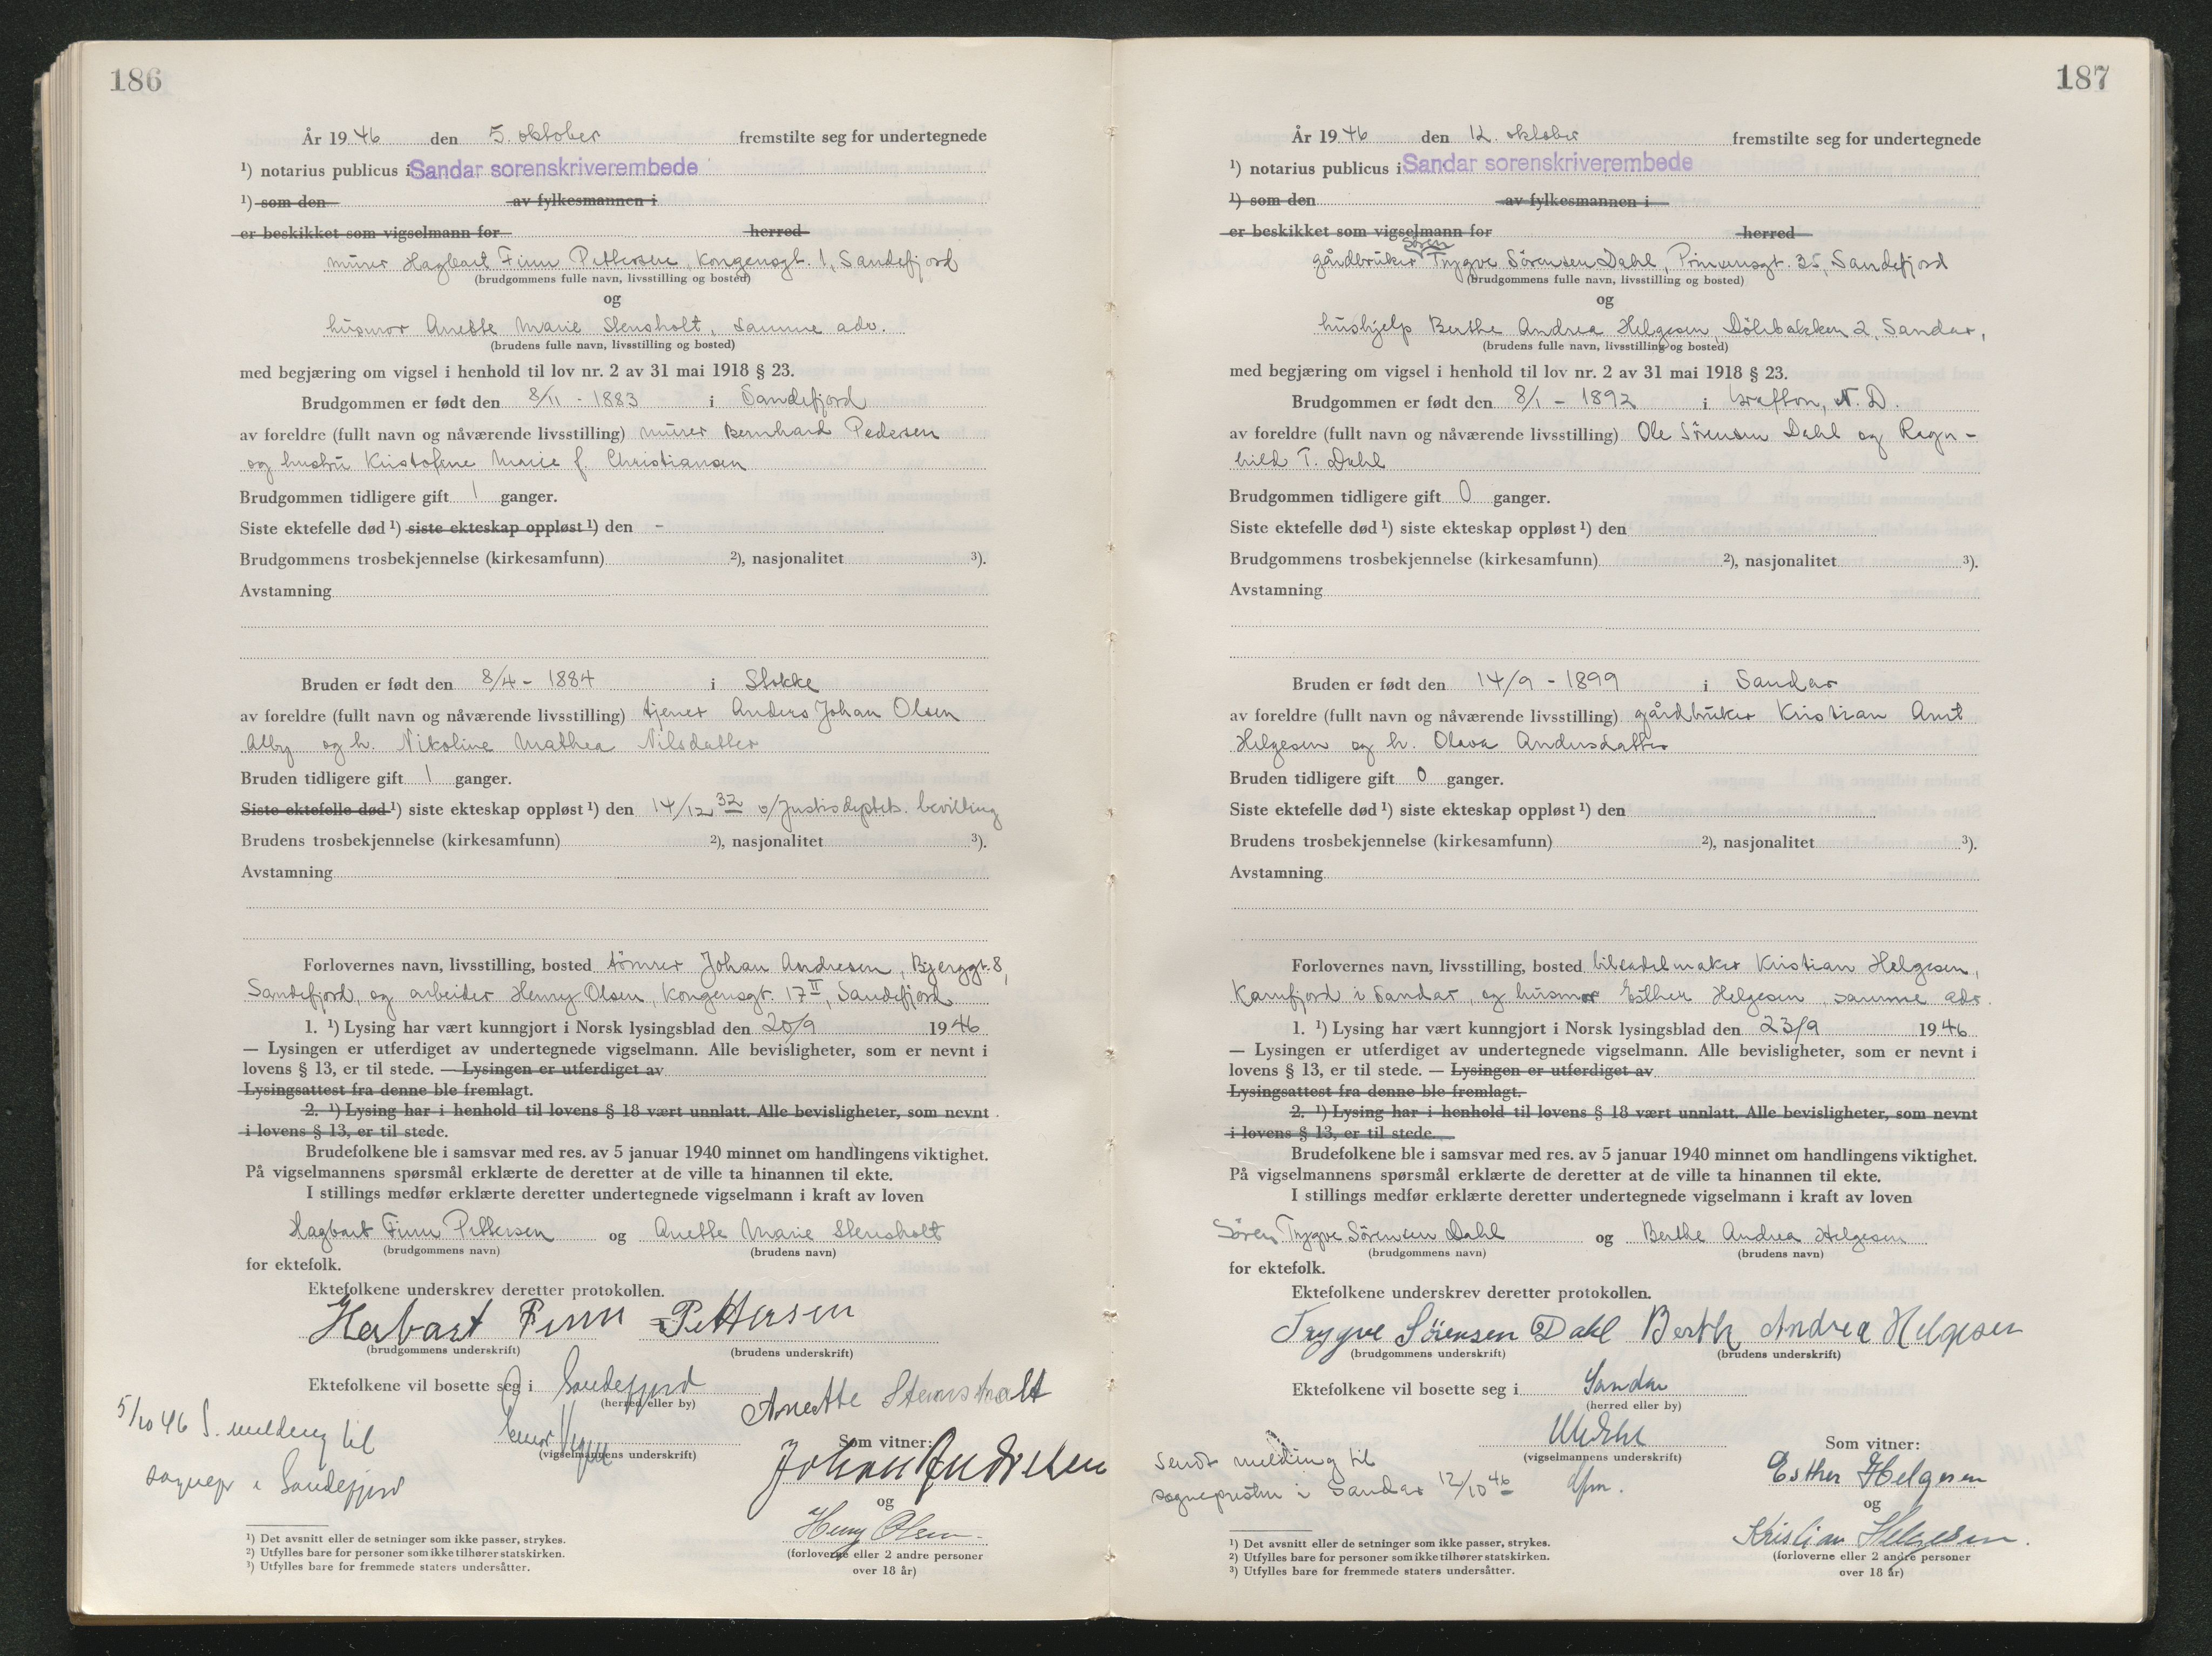 186
År 1946 den 5. oktober fremstilte seg for undertegnede
¹) notarius publicus i Sandar sorenskriverembede
¹) som den av fylkesmannen i
er beskikket som vigselmann for herred
murer Hagbart Finn Pettersen, Kongensgt. 1, Sandefjord
(brudgommens fulle navn, livsstilling og bosted)
og
husmor Anette Marie Stensholt, samme adr.
(brudens fulle navn, livsstilling og bosted)
med begjæring om vigsel i henhold til lov nr. 2 av 31 mai 1918 § 23.
Brudgommen er født den 8/11 - 1883 i Sandefjord
av foreldre (fullt navn og nåværende livsstilling) murer Bernhard Pedersen
og hustru Kristofine Marie f. Christiansen
Brudgommen tidligere gift 1 ganger.
Siste ektefelle død ¹) siste ekteskap oppløst ¹) den -
Brudgommens trosbekjennelse (kirkesamfunn) ²), nasjonalitet ³).
Avstamning
Bruden er født den 8/4 - 1884 i Stokke
av foreldre (fullt navn og nåværende livsstilling) tjener Anders Johan Olsen
Alby og h. Nikoline Mathea Nilsdatter
Bruden tidligere gift 1 ganger.
Siste ektefelle død ¹) siste ekteskap oppløst ¹) den 14/12 32 v/Justisdeptets. bevilling
Brudens trosbekjennelse (kirkesamfunn) ²), nasjonalitet ³).
Avstamning
Forlovernes navn, livsstilling, bosted tömrer Johan Andresen, Bjerggt. 8,
Sandefjord, og arbeider Henry Olsen, Kongensgt. 17 II, Sandefjord
1. ¹) Lysing har vært kunngjort i Norsk lysingsblad den 20/9 1946
— Lysingen er utferdiget av undertegnede vigselmann. Alle bevisligheter, som er nevnt i
lovens § 13, er til stede. — Lysingen er utferdiget av
Lysingsattest fra denne ble fremlagt.
2. ¹) Lysing har i henhold til lovens § 18 vært unnlatt. Alle bevisligheter, som nevnt
i lovens § 13, er til stede.
Brudefolkene ble i samsvar med res. av 5 januar 1940 minnet om handlingens viktighet.
På vigselmannens spørsmål erklærte de deretter at de ville ta hinannen til ekte.
I stillings medfør erklærte deretter undertegnede vigselmann i kraft av loven
Hagbart Finn Pettersen og Anette Marie Stensholt
(brudgommens navn) (brudens navn)
for ektefolk.
Ektefolkene underskrev deretter protokollen.
Herbart Finn Pettersen
(brudgommens underskrift) (brudens underskrift)
Ektefolkene vil bosette seg i Sandefjord
(herred eller by)
Anette Stensholt
5/10 46 S. melding til
sognepr i Sandefjord
(vigselmannens underskrift)
Som vitner:
Johan Andresen
og
Henry Olsen
(forloverne eller 2 andre personer
over 18 år)
¹) Det avsnitt eller de setninger som ikke passer, strykes.
²) Utfylles bare for personer som ikke tilhører statskirken.
³) Utfylles bare for fremmede staters undersåtter.
187
År 1946 den 12. oktober fremstilte seg for undertegnede
¹) notarius publicus i Sandar sorenskriverembede
¹) som den av fylkesmannen i
er beskikket som vigselmann for herred
Sören
gårdbruker Trygve Sörensen Dahl, Prinsensgt. 35, Sandefjord
(brudgommens fulle navn, livsstilling og bosted)
og
hushjelp Berthe Andrea Helgesen, Dölebakken 2, Sandar,
(brudens fulle navn, livsstilling og bosted)
med begjæring om vigsel i henhold til lov nr. 2 av 31 mai 1918 § 23.
Brudgommen er født den 8/1 - 1892 i Grafton, N. D.
av foreldre (fullt navn og nåværende livsstilling) Ole Sörensen Dahl og Ragn-
hild T. Dahl
Brudgommen tidligere gift 0 ganger.
Siste ektefelle død ¹) siste ekteskap oppløst ¹) den
Brudgommens trosbekjennelse (kirkesamfunn) ²), nasjonalitet ³).
Avstamning
Bruden er født den 14/9 - 1899 i Sandar
av foreldre (fullt navn og nåværende livsstilling) gårdbruker Kristian Arnt
Helgesen og h. Olava Andersdatter
Bruden tidligere gift 0 ganger.
Siste ektefelle død ¹) siste ekteskap oppløst ¹) den
Brudens trosbekjennelse (kirkesamfunn) ²), nasjonalitet ³).
Avstamning
Forlovernes navn, livsstilling, bosted bilsadelmaker Kristian Helgesen,
Kamfjord i Sandar, og husmor Esther Helgesen, samme adr.
1. ¹) Lysing har vært kunngjort i Norsk lysingsblad den 23/9 1946
— Lysingen er utferdiget av undertegnede vigselmann. Alle bevisligheter, som er nevnt i
lovens § 13, er til stede. — Lysingen er utferdiget av
Lysingsattest fra denne ble fremlagt.
2. ¹) Lysing har i henhold til lovens § 18 vært unnlatt. Alle bevisligheter, som nevnt
i lovens § 13, er til stede.
Brudefolkene ble i samsvar med res. av 5 januar 1940 minnet om handlingens viktighet.
På vigselmannens spørsmål erklærte de deretter at de ville ta hinannen til ekte.
I stillings medfør erklærte deretter undertegnede vigselmann i kraft av loven
Sören Trygve Sörensen Dahl og Berthe Andrea Helgesen
(brudgommens navn) (brudens navn)
for ektefolk.
Ektefolkene underskrev deretter protokollen.
Trygve Sörensen Dahl Berthe Andrea Helgesen
(brudgommens underskrift) (brudens underskrift)
Ektefolkene vil bosette seg i Sandar
(herred eller by)
(vigselmannens underskrift)
Sendt melding til
sognepresten i Sandar 12/10 46
Som vitner:
Esther Helgesen
og
Kristian Helgesen.
(forloverne eller 2 andre personer
over 18 år)
¹) Det avsnitt eller de setninger som ikke passer, strykes.
²) Utfylles bare for personer som ikke tilhører statskirken.
³) Utfylles bare for fremmede staters undersåtter.